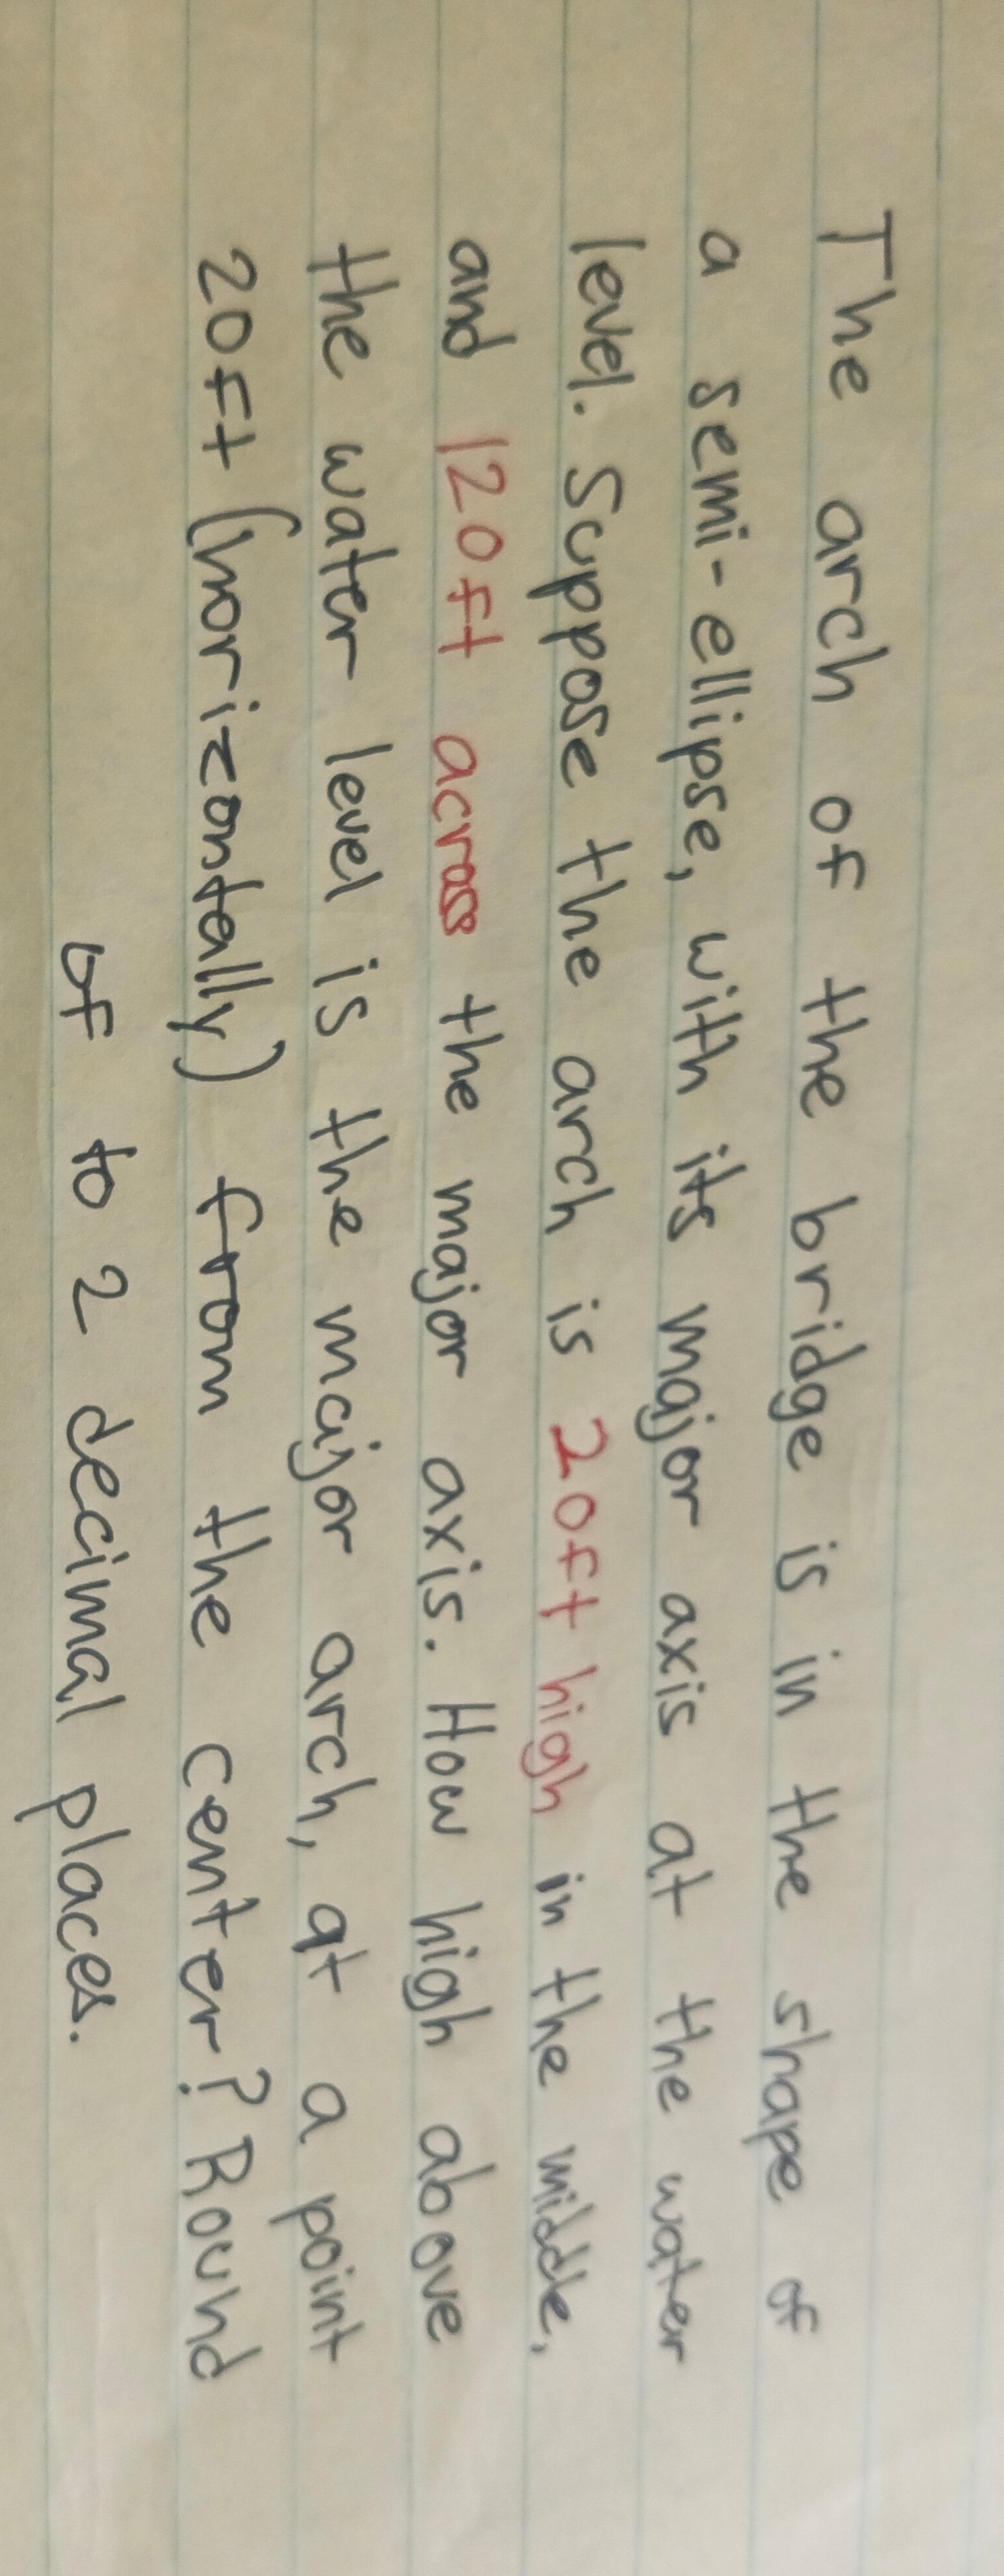 The arch of the bridge is in the shape of
a semi-ellipse, with its major axis at the water
level. Suppose the arch is 20ft high in the middle,
and 120ft across the major axis. How high above
the water level is the major arch, at a point
20ft (horizontally) from the center? Round
of to 2 decimal places.